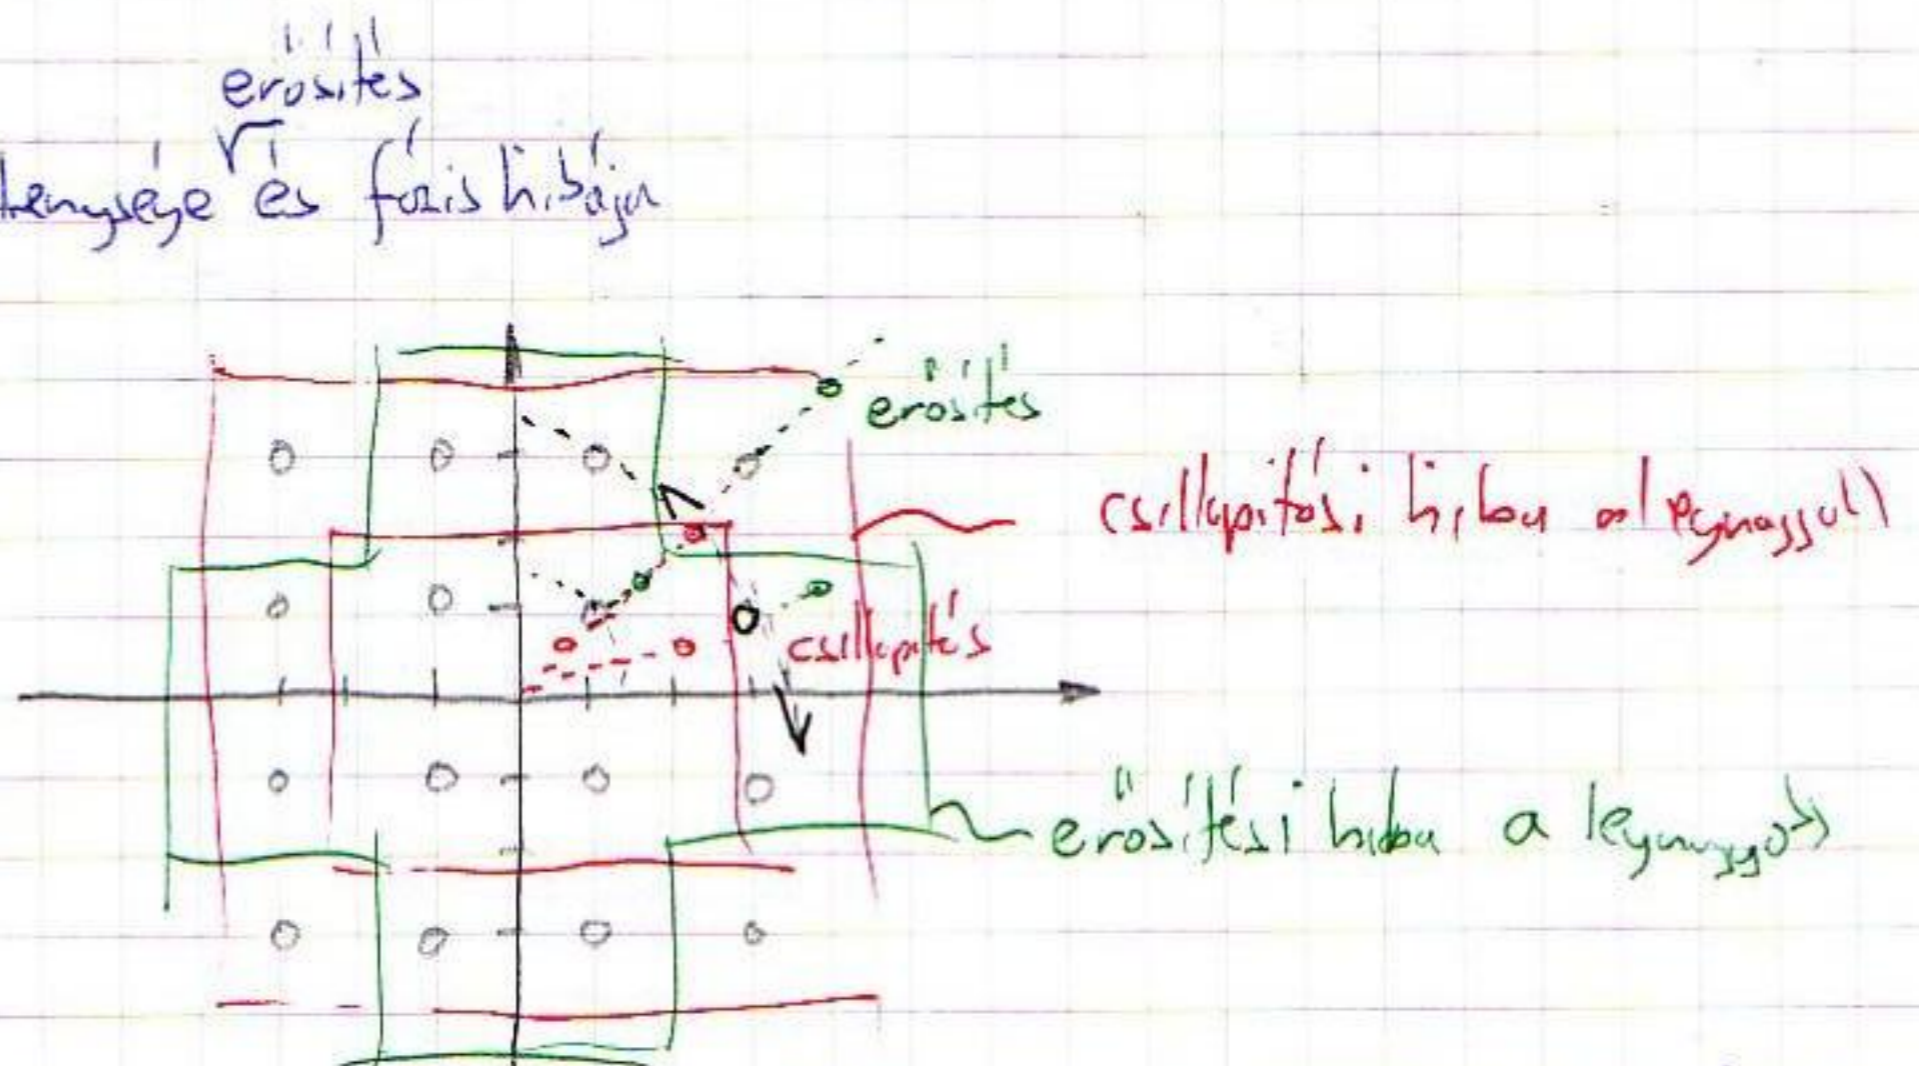 erősítés
és fázis hibája
erősítés
csillapítási hiba a legnagyobb
csillapítás
erősítési hiba a legnagyobb